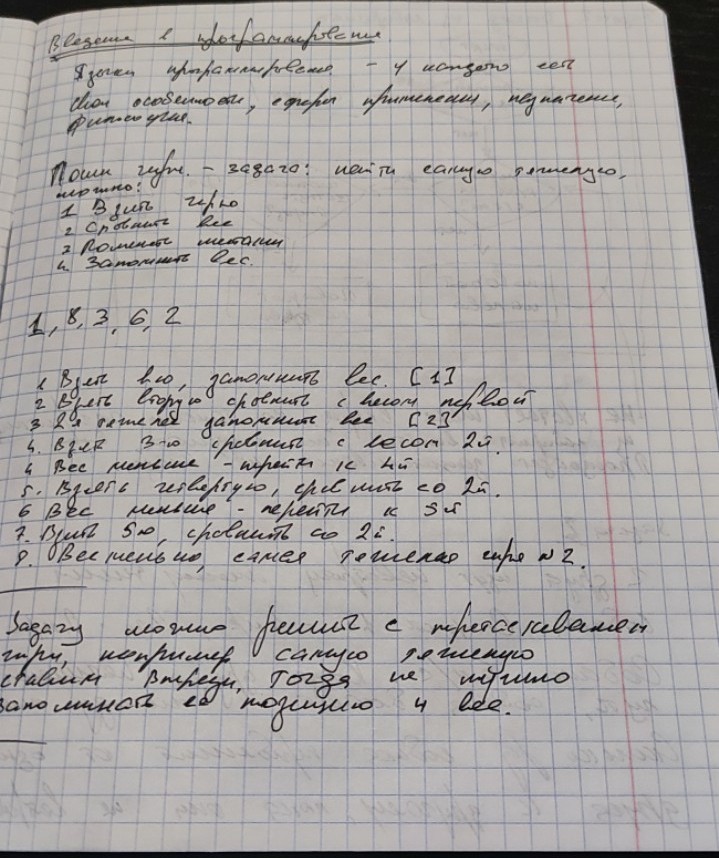 Введение в программирование.
Языки программирования - у каждого есть
свои особенности, сферы применения, назначение,
философия.
гири. - задача: найти самую тяжелую,
можно:
1 Взять гирю
2 Сравнить вес
3 Поменять местами
4. Запомнить вес.
1, 8, 3, 6, 2
1 Взять 1ю, запомнить вес. [1]
2 Взять вторую сравнить с весом первой
3 2я тяжелее запомнить вес [2]
4. Взять 3-ю сравнить с весом 2й.
4 Вес меньше - перейти к 4й
5. Взять четвертую, сравнить со 2й.
6 Вес меньше - перейти к 5й
7. Взять 5ю, сравнить со 2й.
8. Вес меньше, самая тяжелая гиря №2.
Задачу можно решить с перетаскиванием
гири, например самую тяжелую
ставим впереди, тогда не нужно
запоминать ее позицию и вес.